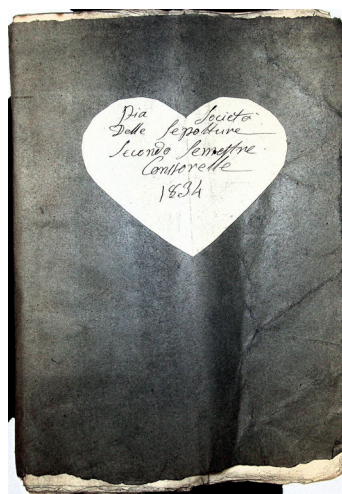 Pia Società
Delle Sepolture
Secondo Semestre
Consorelle
1834